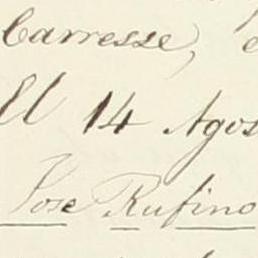 Carresse, e
El 14 Agos
Jose Rufino